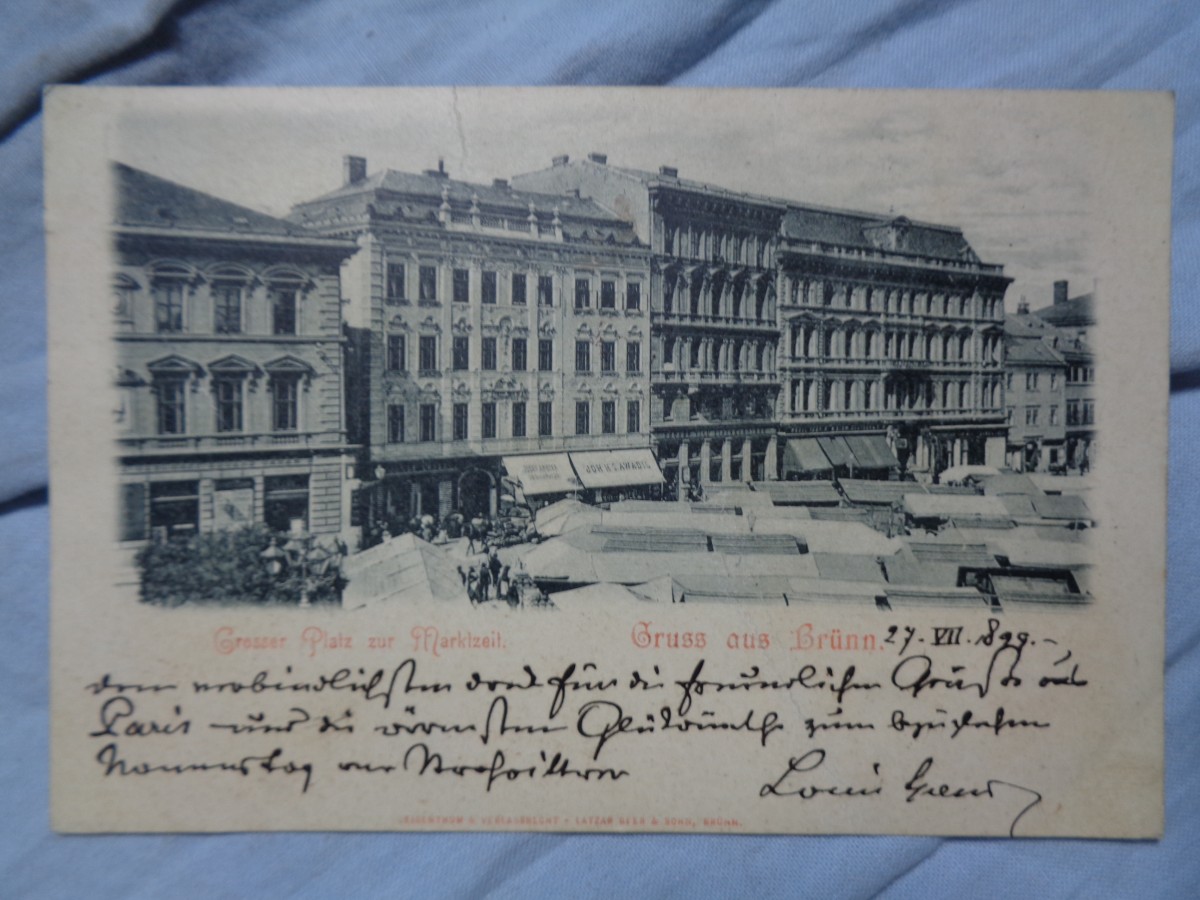 JOH. N. GAWADIL
Grosser Platz zur Marktzeit.
Gruss aus Brünn.
27. VII. 899.-
den verbindlichsten Dank für die freundlichen Grüße aus
Paris und die wärmsten Glückwünsche zum
Namenstag
Louis
EIGENTHUM & VERLAGSRECHT